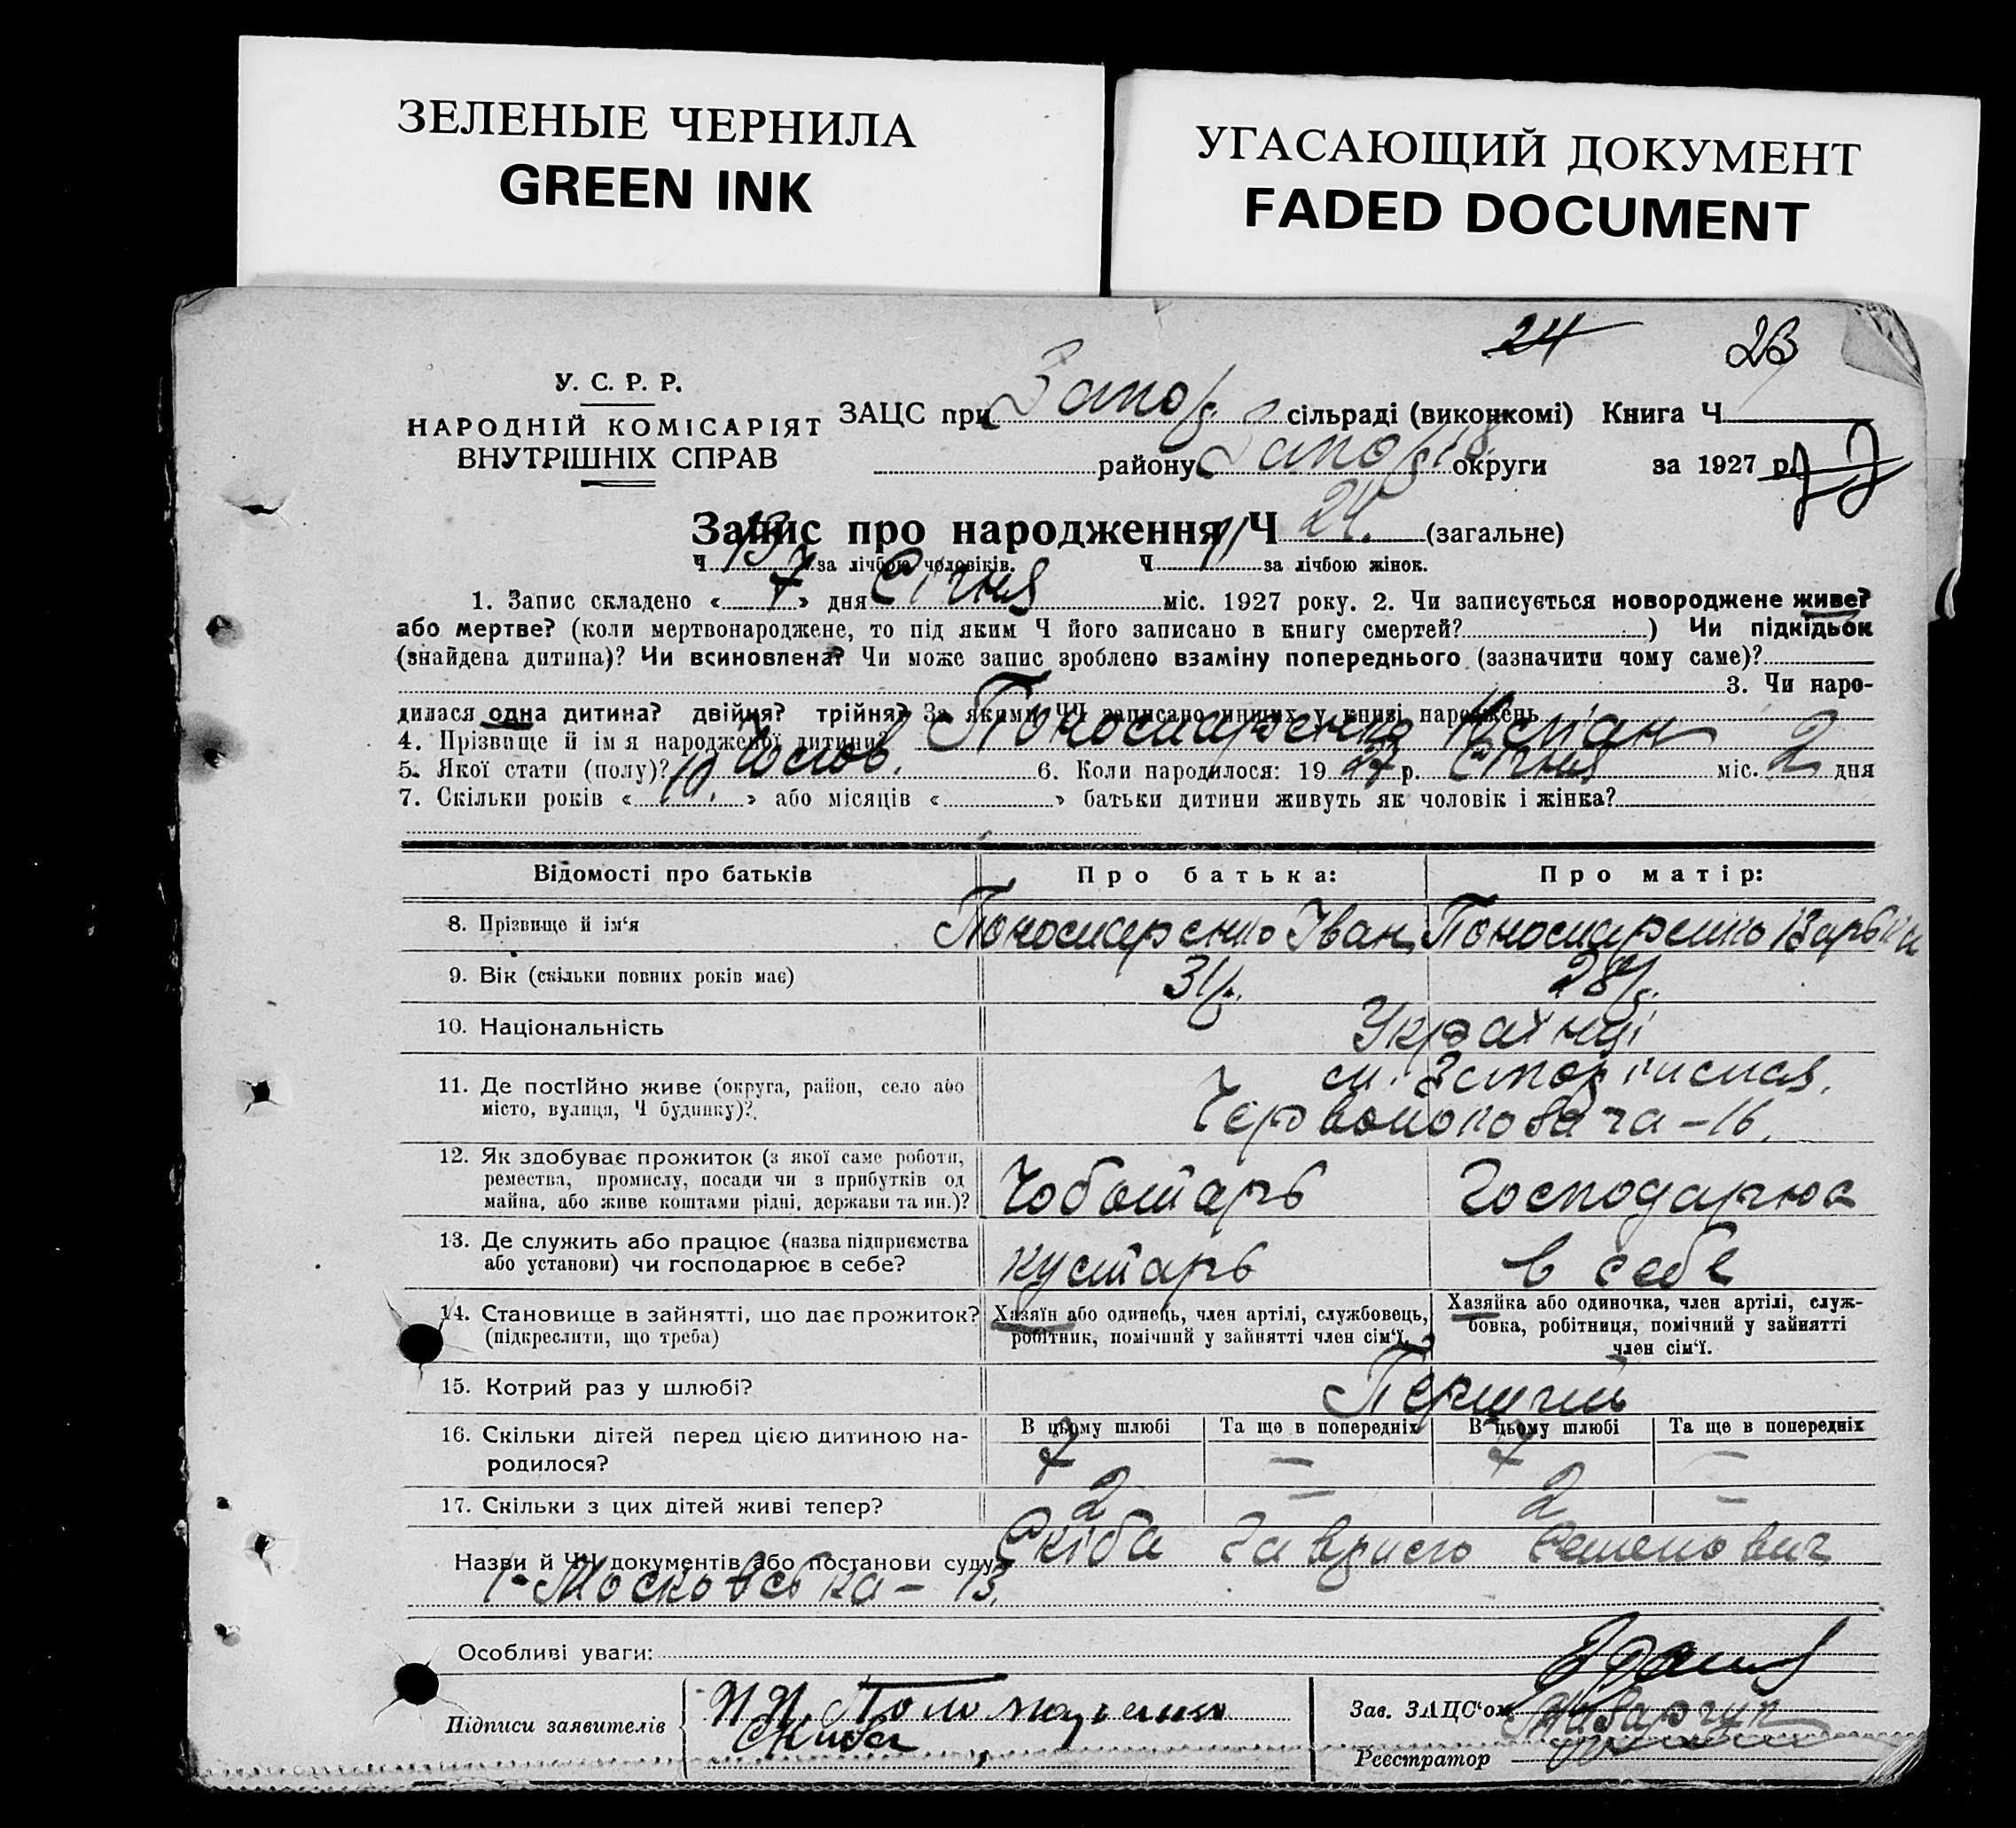 ЗЕЛЕНЫЕ ЧЕРНИЛА
GREEN INK
УГАСАЮЩИЙ ДОКУМЕНТ
FADED DOCUMENT
24 23
У. С. Р. Р.
НАРОДНІЙ КОМІСАРІЯТ
ВНУТРІШНІХ СПРАВ
ЗАЦС при Запо сільраді (виконкомі) Книга Ч
району Запо округи за 1927 р.
Запис про народження Ч 24. (загальне)
Ч 13 за лічбою чоловіків. Ч 11 за лічбою жінок.
1. Запис складено « 7 » дня Січня міс. 1927 року. 2. Чи записується новороджене живе?
або мертве? (коли мертвонароджене, то під яким Ч його записано в книгу смертей? ) Чи підкідьок
(знайдена дитина)? Чи всиновлена? Чи може запис зроблено взаміну попереднього (зазначити чому саме)?
3. Чи наро-
дилася одна дитина? двійня? трійня? За якими ЧЧ записано инших у книзі народжень
4. Прізвище й ім я народженої дитини?
5. Якої стати (полу)? Чолов. 6. Коли народилося: 19 27 р. Січня міс. 2 дня
7. Скільки років « 10. » або місяців « » батьки дитини живуть як чоловік і жінка?
Відомості про батьків Про батька: Про матір:
8. Прізвище й ім‘я Іван
9. Вік (скільки повних років має) 31 28
10. Національність Українці
11. Де постійно живе (округа, район, село або
місто, вулиця, Ч будинку)? м.
– 16.
12. Як здобуває прожиток (з якої саме роботи,
ремества, промислу, посади чи з прибутків од
майна, або живе коштами рідні, держави та ин.)? Чоботарь Господарює
13. Де служить або працює (назва підприємства
або установи) чи господарює в себе? кустарь в себе
14. Становище в зайнятті, що дає прожиток?
(підкреслити, що треба)
Хазяїн або одинець, член артілі, службовець,
робітник, помічний у зайнятті член сім‘ї.
Хазяйка або одиночка, член артілі, служ-
бовка, робітниця, помічний у зайнятті
член сім‘ї.
15. Котрий раз у шлюбі? Перший
16. Скільки дітей перед цією дитиною на-
родилося?
В цьому шлюбі Та ще в попередніх В цьому шлюбі Та ще в попередніх
7 — 7 —
17. Скільки з цих дітей живі тепер? 2 — 2 —
Назви й ЧЧ документів або постанови суду: Скіба Гаврило Семенович
1-Московська – 13.
Особливі уваги:
Підписи заявителів
Зав. ЗАЦС‘ом
Реєстратор